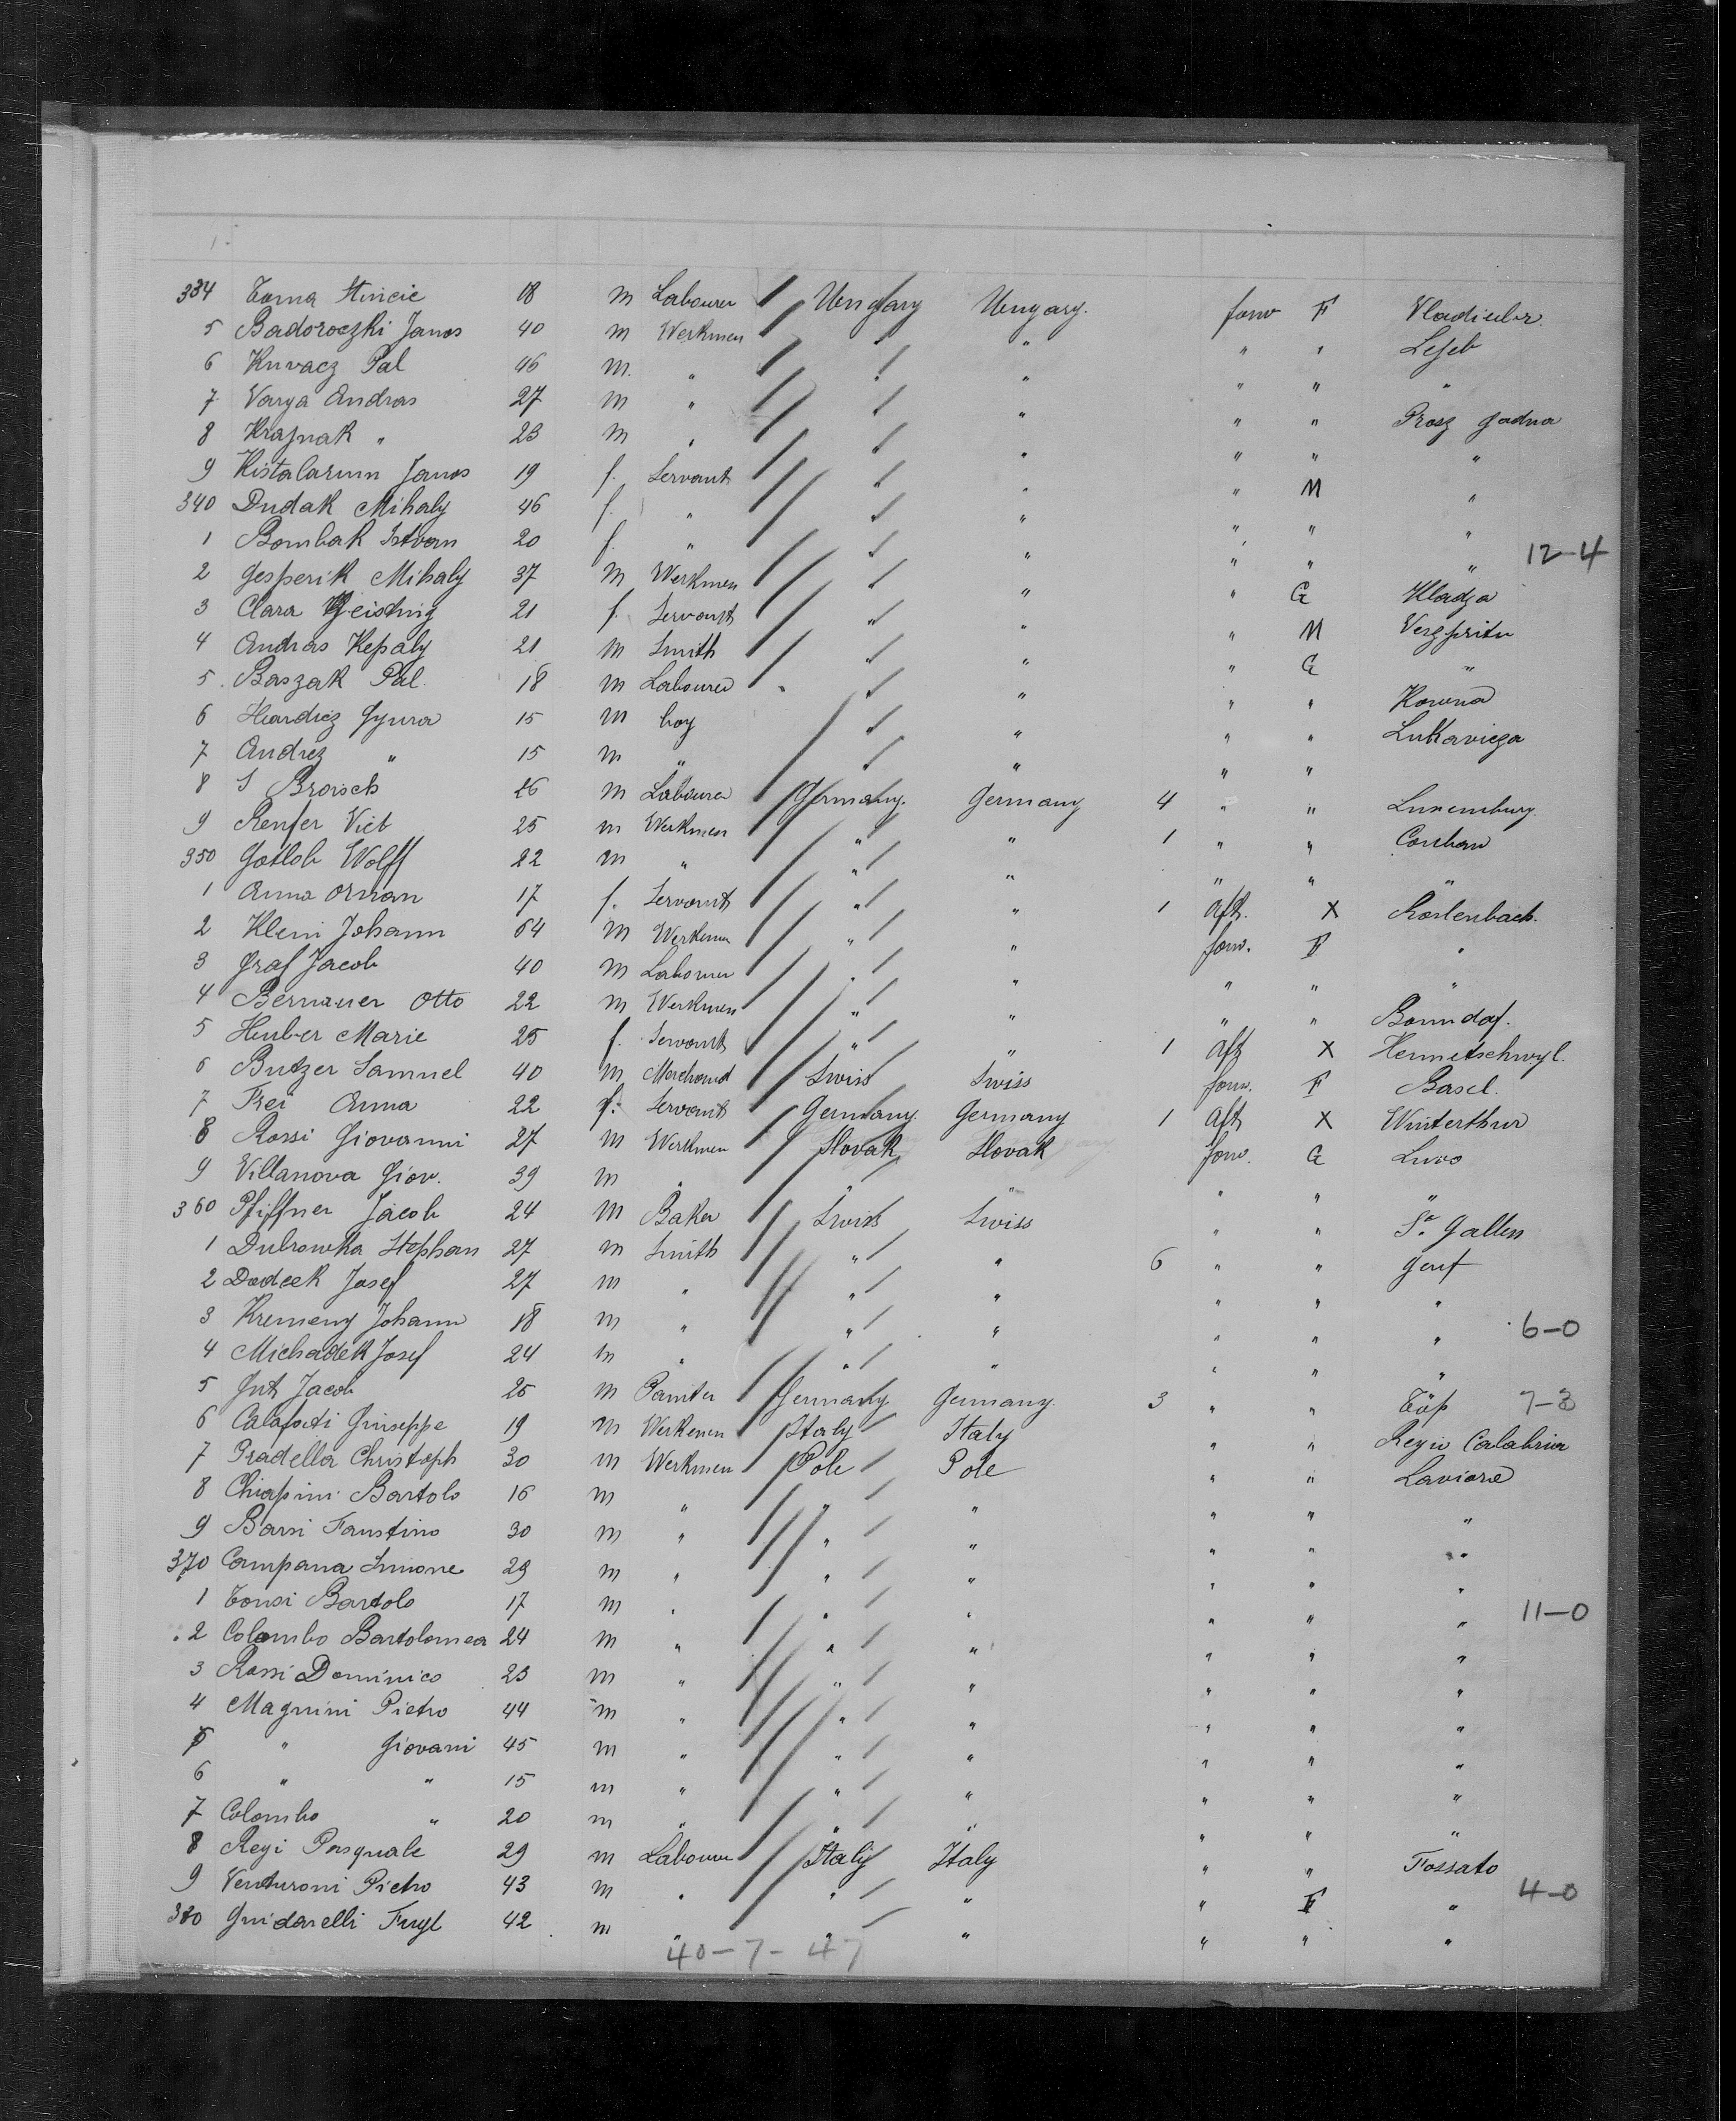 334 Toma Stincic 18 m Labourer Ungary Ungary. forw F Vladiubr.
5 Badoroczki Janos 40 m Werkmen " " " " Leseb
6 Kuvacz Pal 46 m. " " " " " "
7 Varga Andras 27 m " " " " " Prosz gadna
8 Krajnak " 23 m " " " " " "
9 Kistalarum Janos 19 f. Servant " " " M "
340 Dudak Mihaly 46 f. " " " " " "
1 Bombak Istvan 20 f. " " " " " " 12-4
2 Gesperik Mihaly 37 m Werkmen " " " G Kladza
3 Clara Geistnig 21 f. Servant " " " M
4 Andras Kepaly 21 m Smith " " " G "
5. Baszak Pal. 18 m Labourer " " " " Korona
6 Hardicz Gyura 15 m boy " " " " Lukaviega
7 Andrez " 15 m " " " " "
8 S Broisch 26 m Labourer Germany. Germany 4 " " Luxemburg.
9 Renfer Vict 25 m Werkmen " " 1 " "
350 Gotlob Wolff 22 m " " " " " "
1 Anna Orman 17 f. Servant " " 1 Aft. X Rorlenbach.
2 Klein Johann 64 m Werkmen " " forw. F "
3 Graf Jacob 40 m Labourer " " " " "
4 Bernauer Otto 22 m Werkmen " " " " Bonndof.
5 Huber Marie 25 f. Servant " " 1 Aft X Hermetschwyl.
6 Butzer Samuel 40 m Merchand Swiss Swiss forw. F Basel.
7 Frei Anna 22 f. Servant Germany. Germany 1 Aft X Winterthur
8 Rossi Giovanni 27 m Werkmen Slovak Slovak forw. G Luvo
9 Villanova Giov. 39 m " " " " " "
360 Pfiffner Jacob 24 m Baker Swiss Swiss " " St. Gallen
1 Dubrowka Stephan 27 m Smith " " 6 " " Genf
2 Dodeek Josef 27 m " " " " " "
3 Kremeny Johann 18 m " " " " " " 6-0
4 Michadek Josef 24 m " " " " " "
5 Gut Jacob 25 m Painter Germany Germany. 3 " " Töss 7-3
6 Calafoti Guiseppe 19 m Werkmen Italy Italy " " Regio Calabria
7 Pradella Christoph 30 m Werkmen Pole Pole " " Laviore
8 Chiapini Bartolo 16 m " " " " " "
9 Barsi Faustino 30 m " " " " " "
370 Campana Simone 29 m " " " " " "
1 Tonsi Bartolo 17 m " " " " " " 11-0
2 Colombo Bartolomea 24 m " " " " " "
3 Rossi Dominico 23 m " " " " " "
4 Magnini Pietro 44 m " " " " " "
5 " Giovani 45 m " " " " " "
6 " " 15 m " " " " " "
7 Colombo " 20 m " " " " " "
8 Regi Pasquale 29 m Labourer Italy Italy " " Fossato
9 Venturoni Pietro 43 m " " " " F " 4-0
380 Guidarelli Fugl 42 m " " " " " "
40-7-47